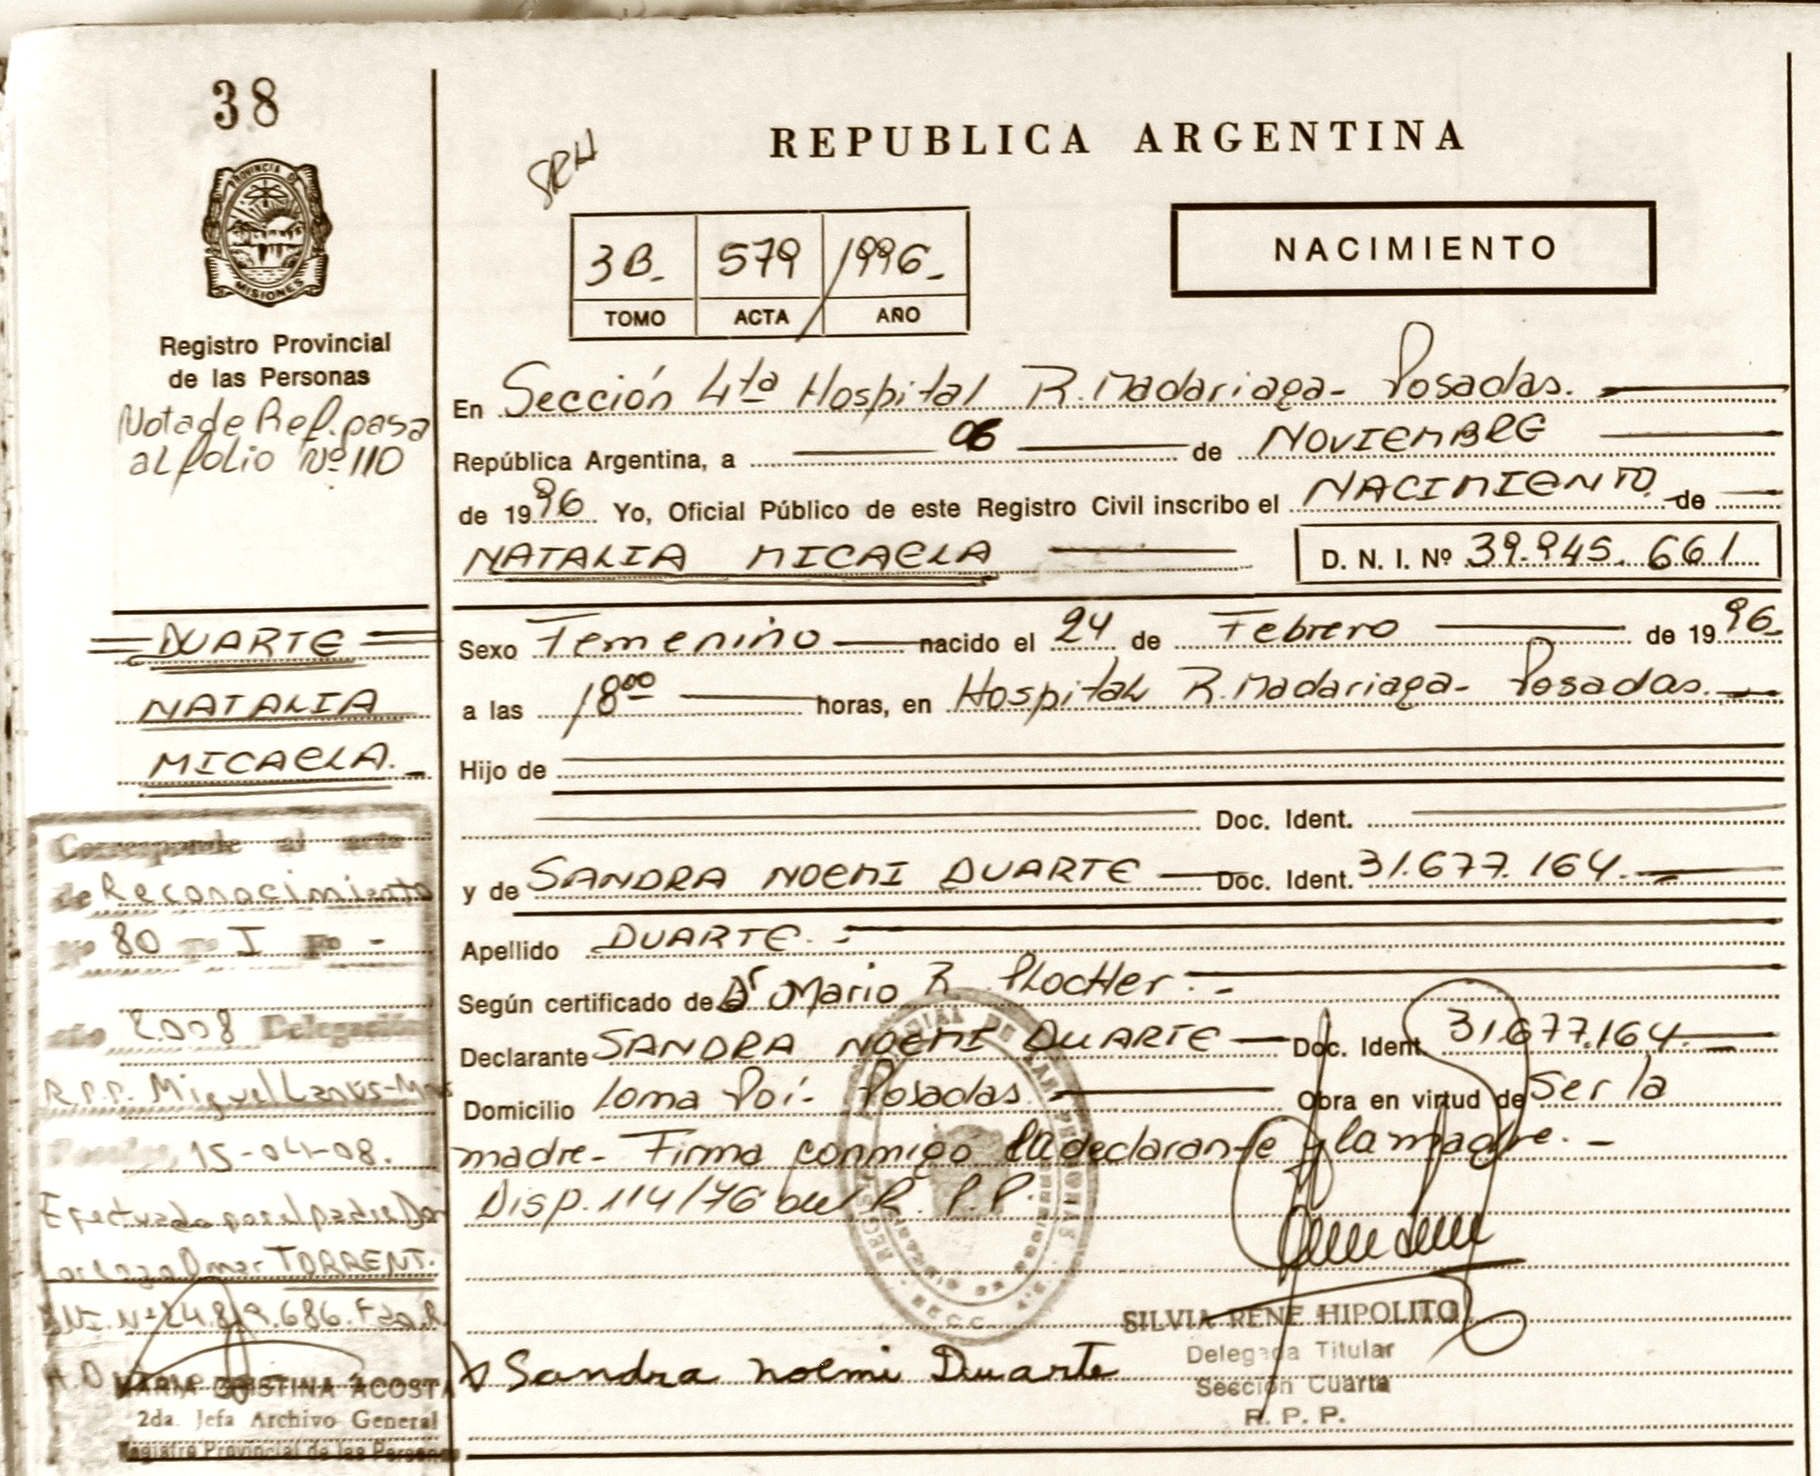 38
SRH
REPUBLICA ARGENTINA
PROVINCIA D
MISIONES
3B_ 579 /1996_
TOMO ACTA AÑO
NACIMIENTO
Registro Provincial
de las Personas
Nota de Ref. pasa
al folio Nº 110
En Sección 4ta Hospital R. Madariaga - Posadas.
República Argentina, a 06 de NOVIEMBRE
de 1996 Yo, Oficial Público de este Registro Civil inscribo el NACIMIENTO de
NATALIA MICAELA D. N. I. Nº 39.945.661
DUARTE
NATALIA
MICAELA.
Sexo Femenino nacido el 24 de Febrero de 1996
a las 18 00 horas, en Hospital R. Madariaga - Posadas.
Hijo de
Doc. Ident.
y de SANDRA NOEMI DUARTE Doc. Ident. 31.677.164.
Apellido DUARTE.
Según certificado de Dr Mario R. Plocher.
Declarante SANDRA NOEMI DUARTE Doc. Ident. 31.677.164
Domicilio Loma Poí - Posadas Obra en virtud de Ser la
madre - Firma conmigo la declarante y la madre. -
Disp. 114/76 del R. P. P.
Sandra Noemi Duarte
SILVIA RENE HIPOLITO
Delegada Titular
Sección Cuarta
R. P. P.
Corresponde al acta
de Reconocimiento
Nº 80 Tº I Fº -
año 2.008 Delegación
R.P.P. Miguel Lanús-
Posadas, 15-04-08.
Efectuado por el padre Don
Omar TORRENT.
Nº 24.819.686. Fdo. R
MARIA CRISTINA ACOSTA
2da. Jefa Archivo General
Registro Provincial de las Personas